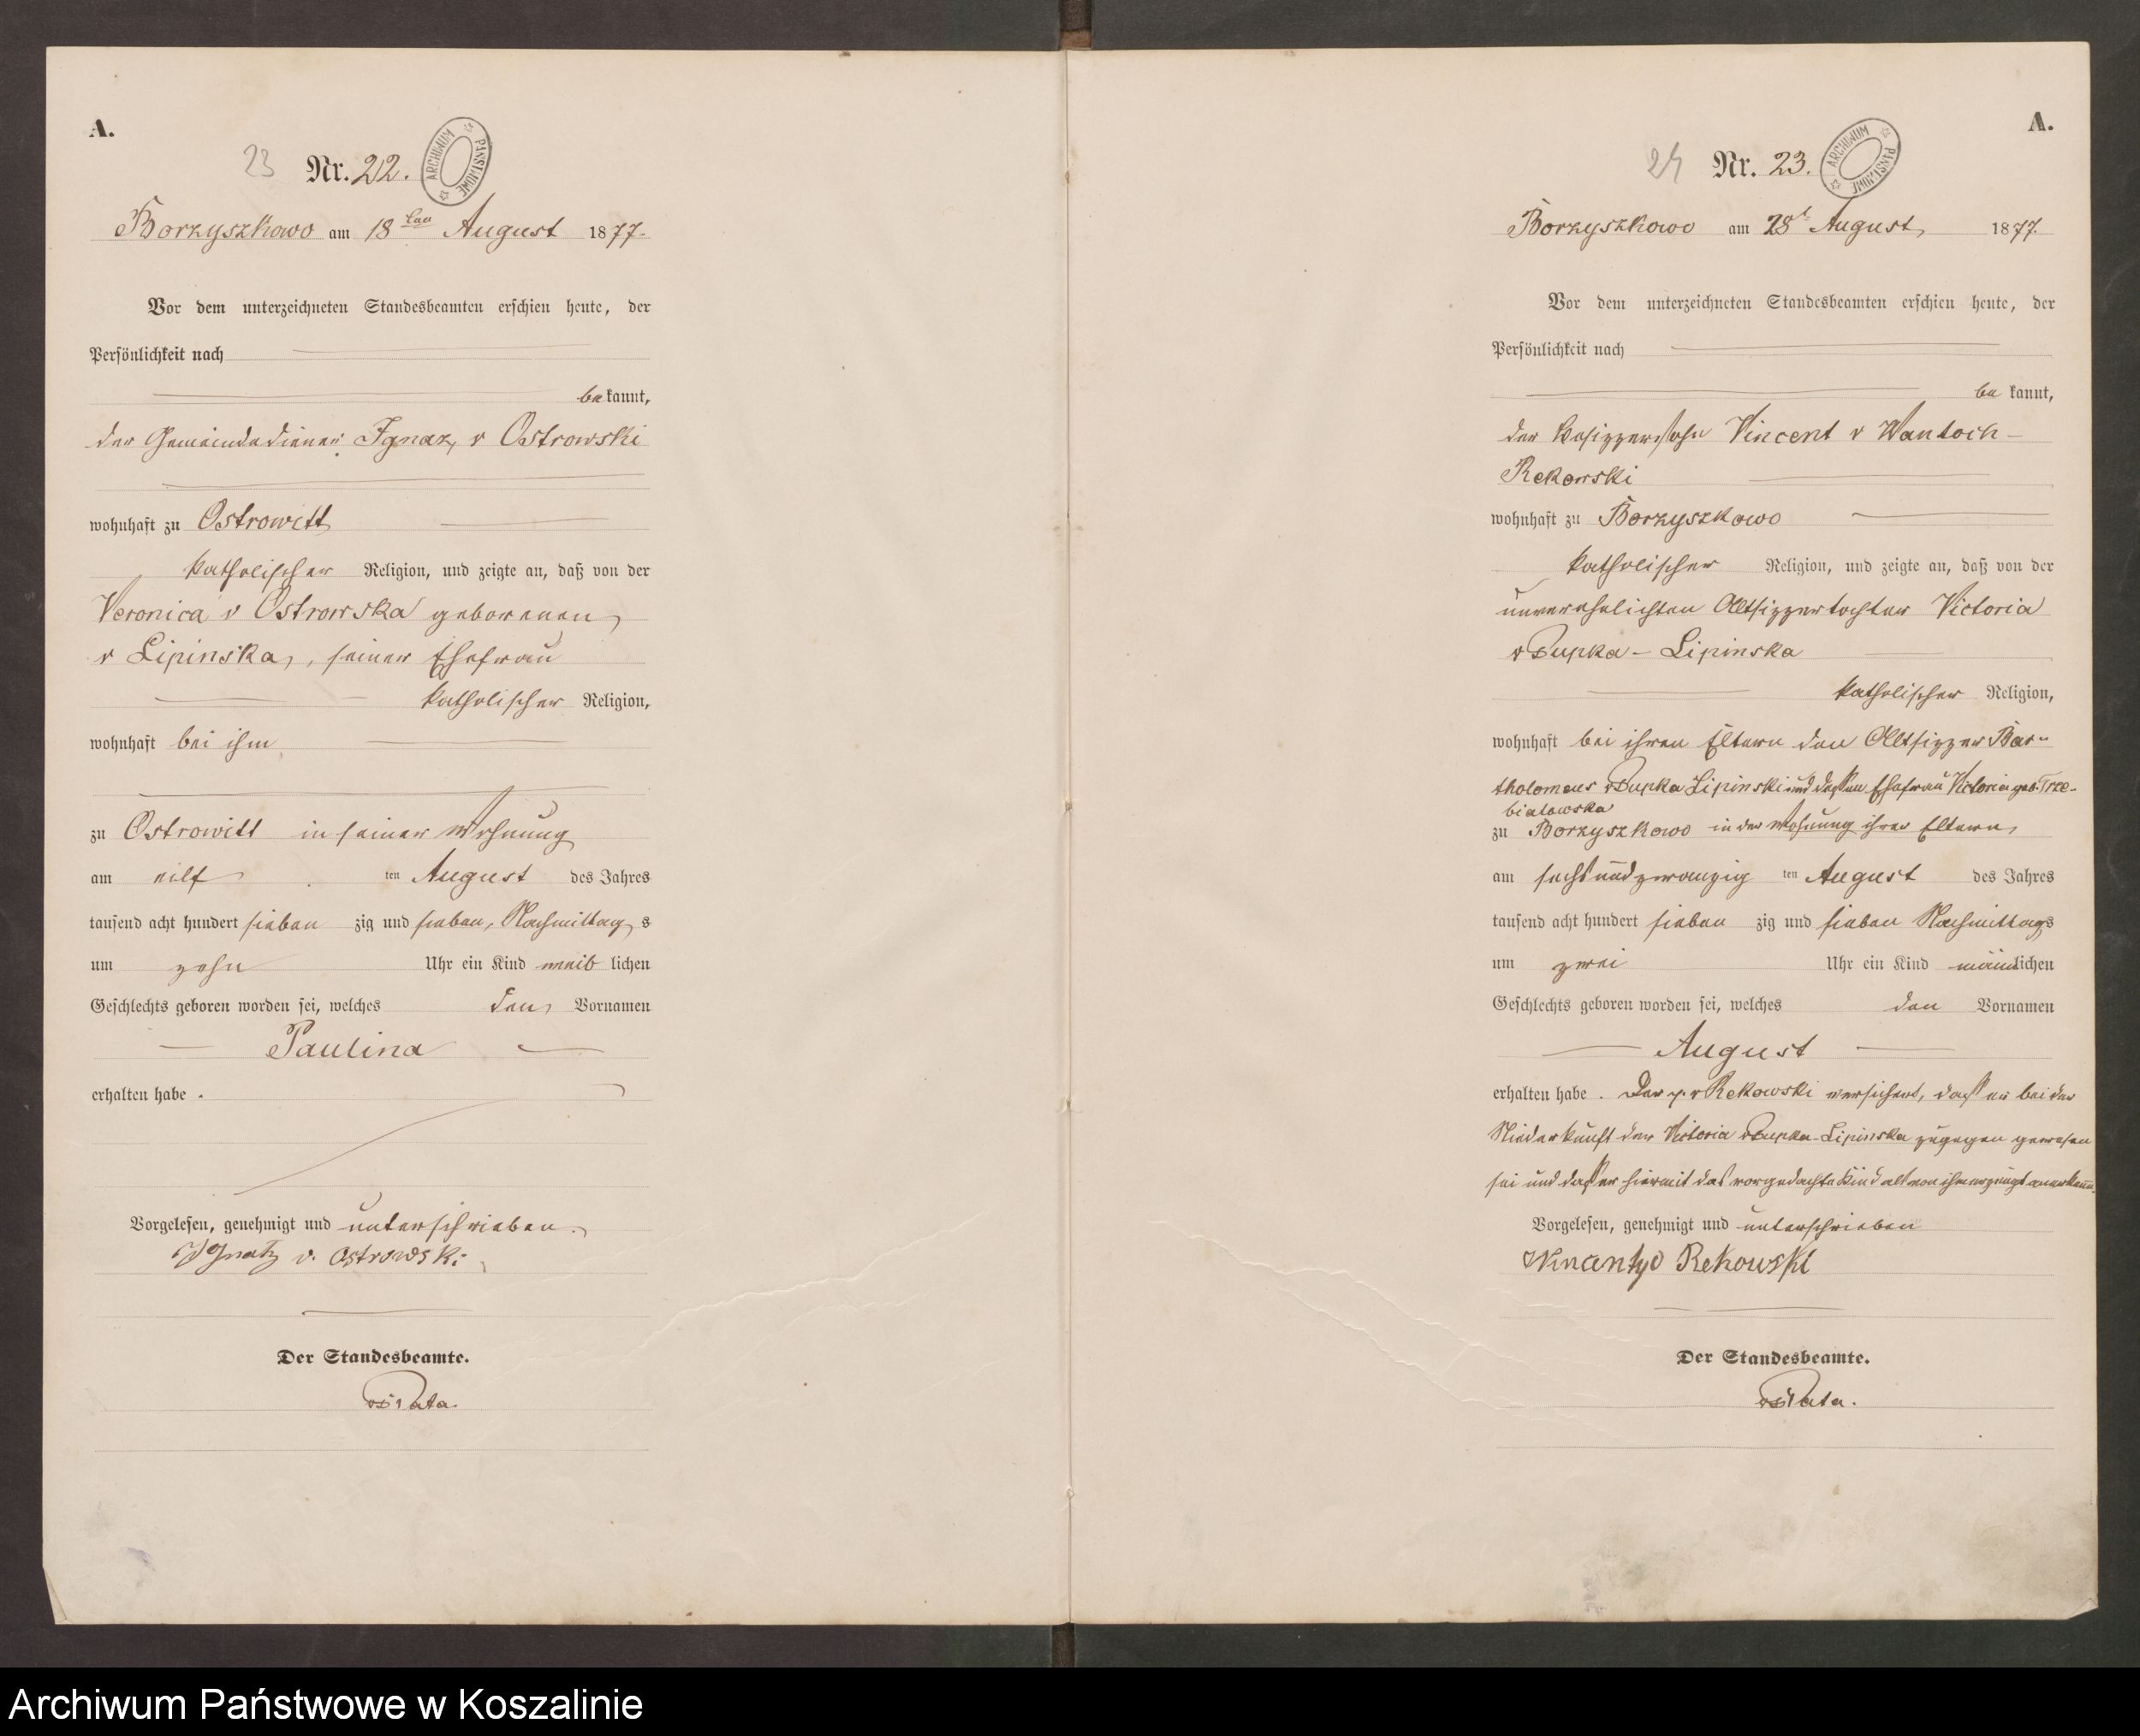 A.
23 Nr. 22. ARCHIWUM PAŃSTWOWE
Borzyszkowo am 18ten August 1877.
Vor dem unterzeichneten Standesbeamten erschien heute, der
Persönlichkeit nach
bekannt,
der Gemeindediener Ignaz v Ostrowski
wohnhaft zu Ostrowitt
katholischer Religion, und zeigte an, daß von der
Veronica v Ostrowska geborenen
v Lipinska, seiner Ehefrau
katholischer Religion,
wohnhaft bei ihm
zu Ostrowitt in seiner Wohnung
am eilf ten August des Jahres
tausend acht hundert sieben zig und sieben, Nachmittags
um zehn Uhr ein Kind weiblichen
Geschlechts geboren worden sei, welches den Vornamen
Paulina
erhalten habe.
Vorgelesen, genehmigt und unterschrieben.
Ignatz v. Ostrowski
Der Standesbeamte.
A.
24 Nr. 23. ARCHIWUM PAŃSTWOWE
Borzyszkowo am 28t August 1877.
Vor dem unterzeichneten Standesbeamten erschien heute, der
Persönlichkeit nach
bekannt,
der Besitzersohn Vincent v Wantoch-
Rekowski
wohnhaft zu Borzyszkowo
katholischer Religion, und zeigte an, daß von der
unverehelichten Altsitzertochter Victoria
v Bupka - Lipinska
katholischer Religion,
wohnhaft bei ihren Eltern den Altsitzer Bar-
tholomeus v Bupka Lipinski und dessen Ehefrau Victoria geb. Trze-
biatowska
zu Borzyszkowo in der Wohnung ihrer Eltern
am sechsundzwanzig ten August des Jahres
tausend acht hundert sieben zig und sieben Nachmittags
um zwei Uhr ein Kind männlichen
Geschlechts geboren worden sei, welches den Vornamen
August
erhalten habe. Der p. v Rekowski versichert, daß er bei der
Niederkunft der Victoria v Bupka-Lipinska zugegen gewesen
sei und daß er hiermit das vorgedachte Kind als von ihm erzeugt anerkenne.
Vorgelesen, genehmigt und unterschrieben
Rekowski
Der Standesbeamte.
Archiwum Państwowe w Koszalinie